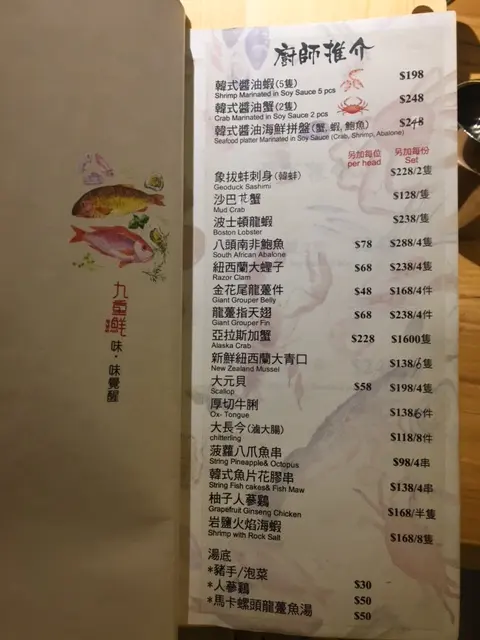 九番鮮
味·味覺醒
廚師推介
韓式醬油蝦(5隻) $198
Shrimp Marinated in Soy Sauce 5 pcs
韓式醬油蟹(2隻) $248
Crab Marinated in Soy Sauce 2 pcs
韓式醬油海鮮拼盤(蟹, 蝦, 鮑魚) $248
Seafood platter Marinated in Soy Sauce (Crab, Shrimp, Abalone)
另加每位 另加每份
per head Set
象拔蚌刺身(韓蚌) $228/2隻
Geoduck Sashimi
沙巴花蟹 $128/隻
Mud Crab
波士頓龍蝦 $238/隻
Boston Lobster
八頭南非鮑魚 $78 $288/4隻
South African Abalone
紐西蘭大蟶子 $68 $238/4隻
Razor Clam
金花尾龍躉件 $48 $168/4件
Giant Grouper Belly
龍躉指天翅 $68 $238/4件
Giant Grouper Fin
亞拉斯加蟹 $228 $1600隻
Alaska Crab
新鮮紐西蘭大青口 $138/6隻
New Zealand Mussel
大元貝 $58 $198/4隻
Scallop
厚切牛脷 $138 6件
Ox- Tongue
大長今(滷大腸) $118/8件
chitterling
菠蘿八爪魚串 $98/4串
String Pineapple& Octopus
韓式魚片花膠串 $138/4串
String Fish cakes& Fish Maw
柚子人蔘鷄 $168/半隻
Grapefruit Ginseng Chicken
岩鹽火焰海蝦 $168/8隻
Shrimp with Rock Salt
湯底
*豬手/泡菜 $30
*人蔘鷄 $50
*馬卡螺頭龍躉魚湯 $50